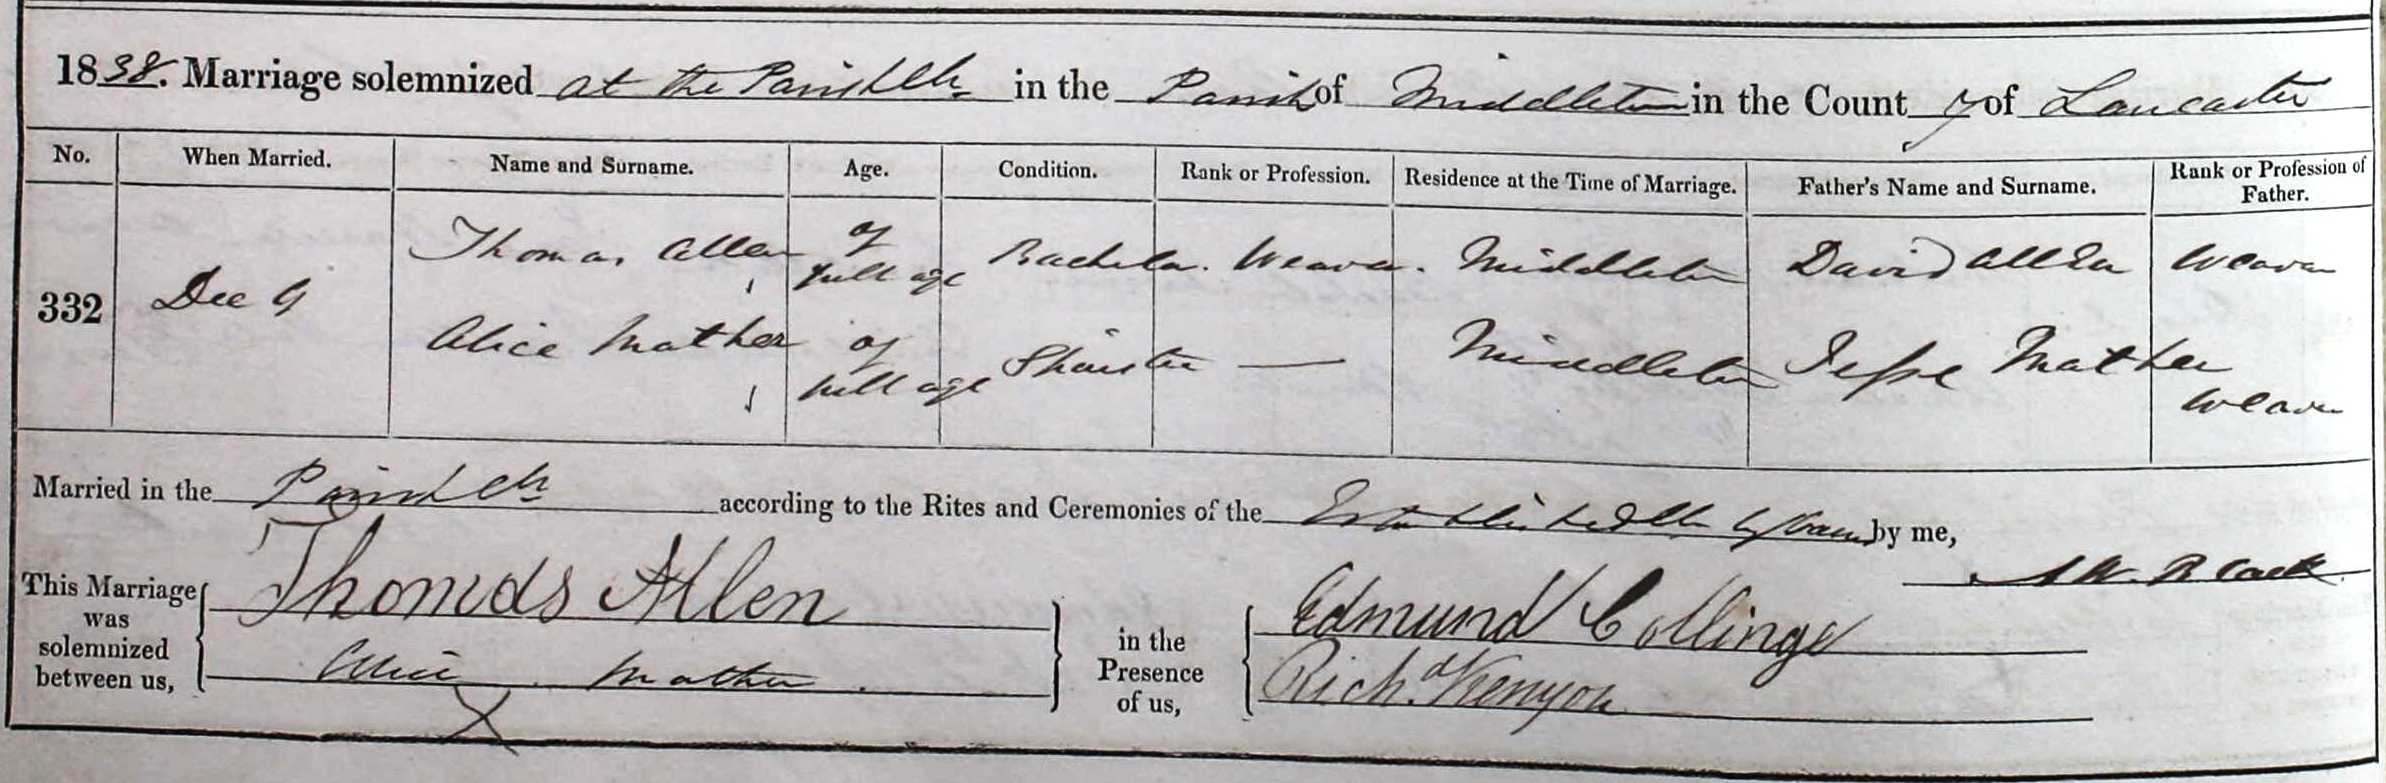 1838. Marriage solemnized at the Parish Ch in the Parish of Middleton in the County of Lancaster
No. When Married. Name and Surname. Age. Condition. Rank or Profession. Residence at the Time of Marriage. Father's Name and Surname. Rank or Profession of Father.
332 Dec 9 Thomas Allen of full age Bachelor. Weaver. Middleton David Allen Weaver
Alice Mather of full age Spinster — Middleton Jesse Mather Weaver
Married in the Parish Ch according to the Rites and Ceremonies of the Established Ch by me,
This Marriage was solemnized between us, Thomas Allen
Alice X Mather
in the Presence of us, Edmund Collinge
Richd Kenyon